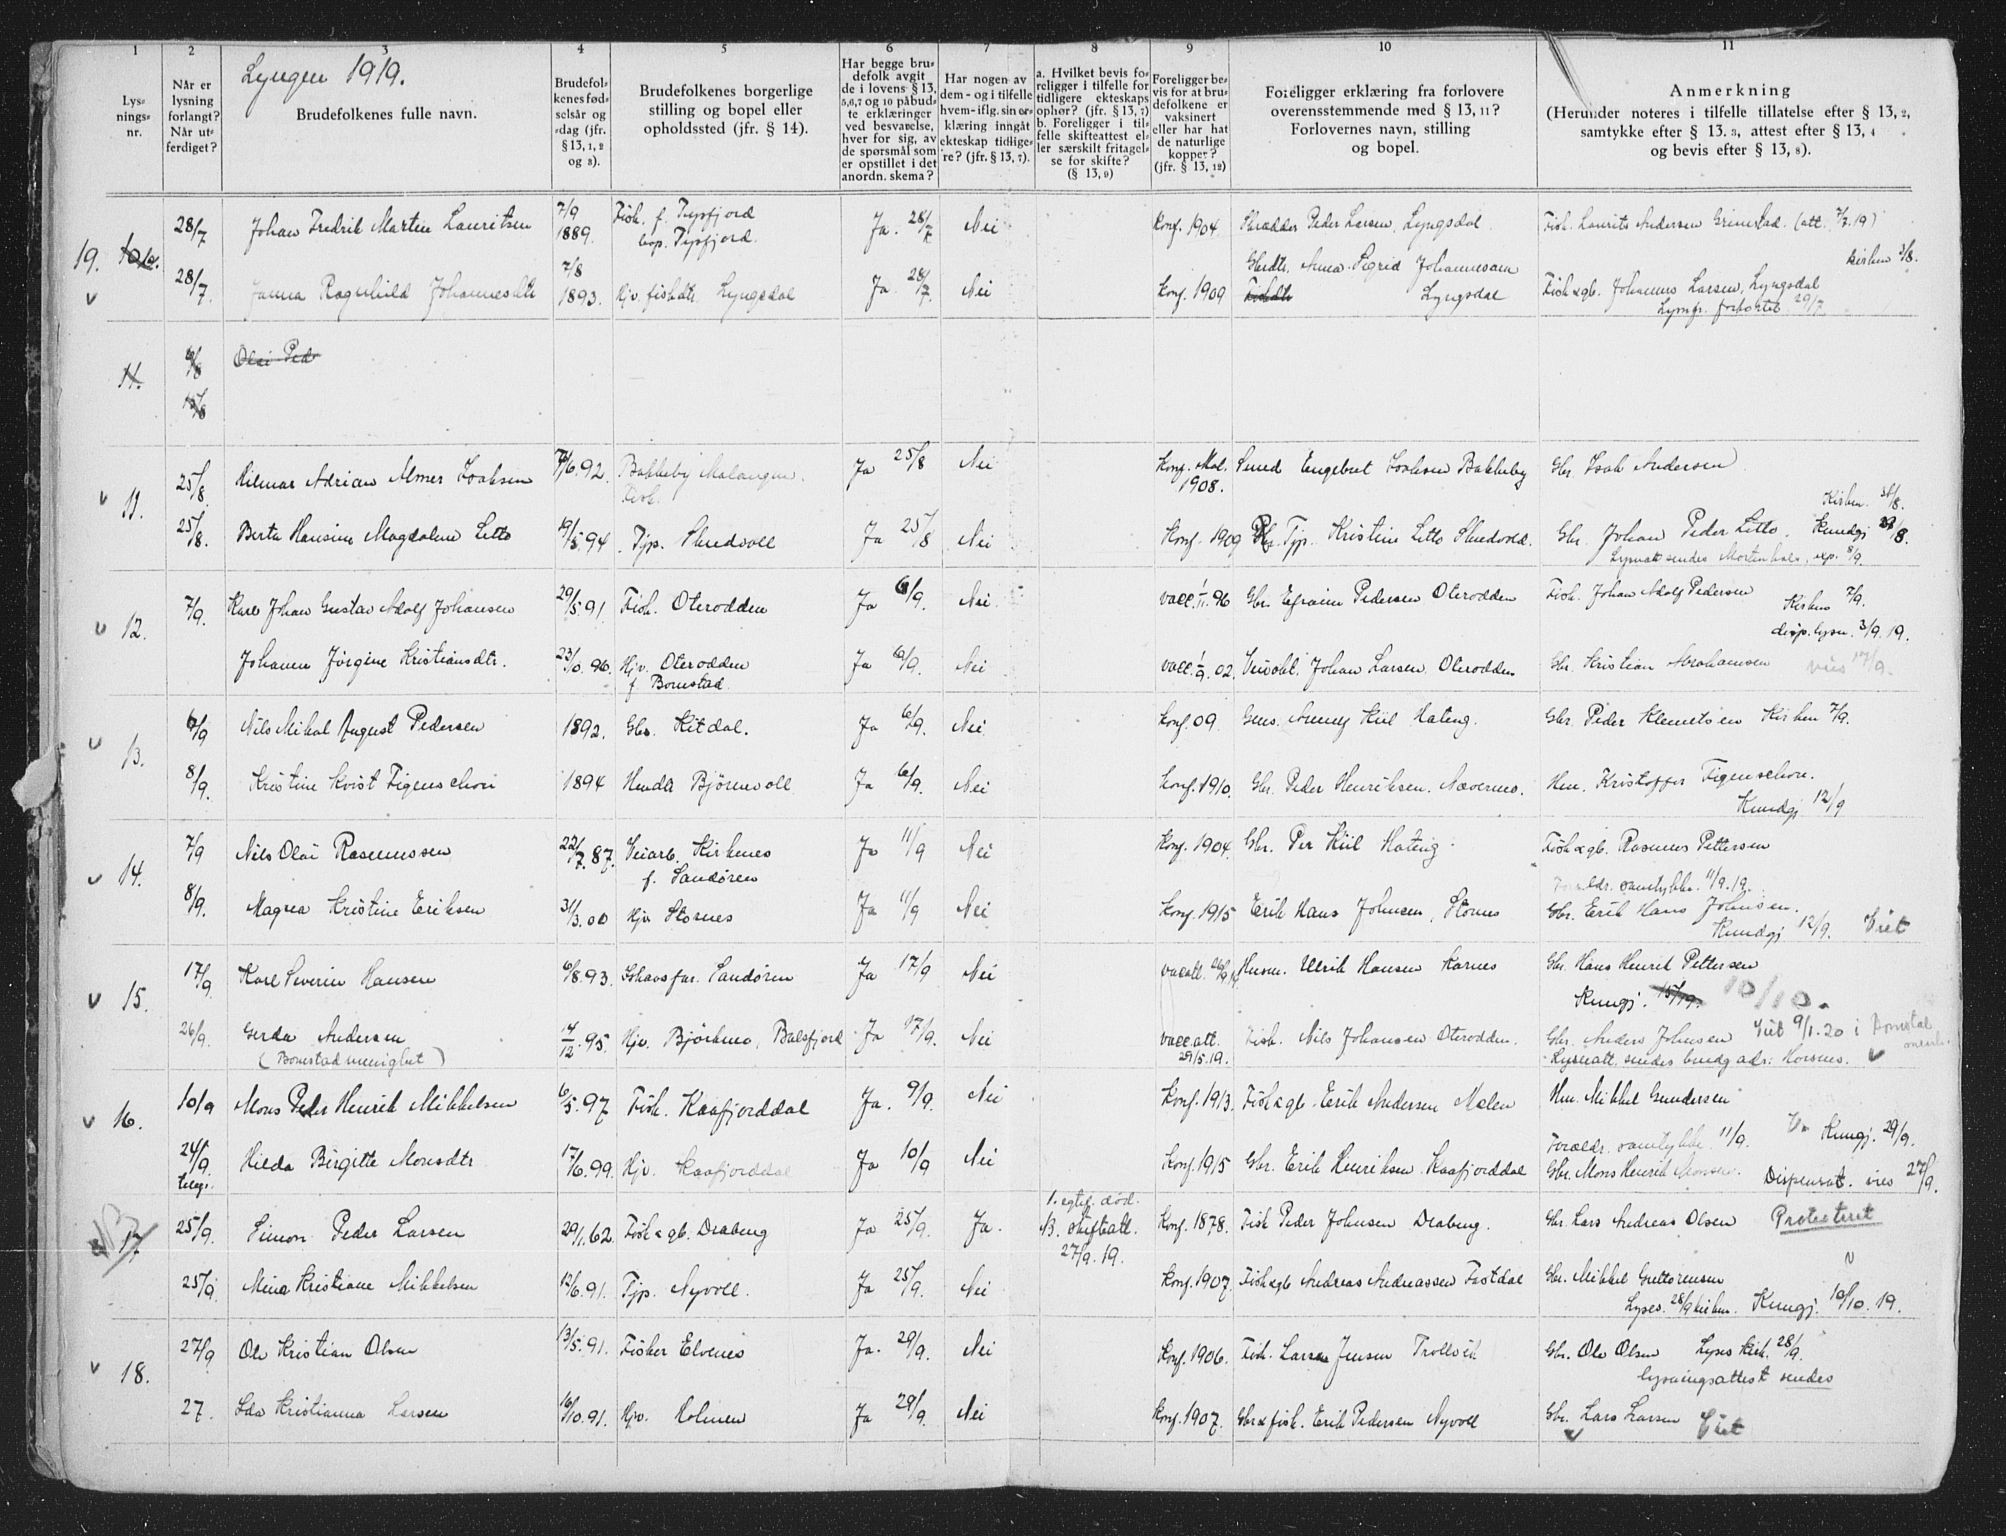 Lyngen 1919.
1 2 3 4 5 6 7 8 9 10 11
Lys-
nings-
nr.
Når er
lysning
forlangt?
Når ut-
ferdiget?
Brudefolkenes fulle navn.
Brudefol-
kenes fød-
selsår og
-dag (jfr.
§ 13, 1, 2
og 3).
Brudefolkenes borgerlige
stilling og bopel eller
opholdssted (jfr. § 14).
Har begge bru-
defolk avgit
de i lovens § 13,
5,6,7 og 10 påbud-
te erklæringer
ved besvarelse,
hver for sig, av
de spørsmål som
er opstillet i det
anordn. skema?
Har nogen av
dem - og i tilfelle
hvem - iflg. sin er-
klæring inngåt
ekteskap tidlige-
re? (jfr. § 13, 7).
a. Hvilket bevis fo-
religger i tilfelle for
tidligere ekteskaps
ophør? (jfr. § 13, 7)
b. Foreligger i til-
felle skifteattest el-
ler særskilt fritagel-
se for skifte?
(§ 13, 9)
Foreligger be-
vis for at bru-
defolkene er
vaksinert
eller har hat
de naturlige
kopper?
(jfr. § 13, 12)
Foreligger erklæring fra forlovere
overensstemmende med § 13, 11?
Forlovernes navn, stilling
og bopel.
Anmerkning
(Herunder noteres i tilfelle tillatelse efter § 13, 2,
samtykke efter § 13. 3, attest efter § 13, 4
og bevis efter § 13, 8).
19. 28/7 Johan Fredrik Martin Lauritsen 7/9 1889. Fisk. f. Typfjord Ja. 28/7 Nei Konf. 1904 Skrædder Peder Larsen, Lyngsdal Fisk. Laurits Andersen Grimstad. (att. 7/7 19)
bop. Typfjord.
kirken 3/8.
28/7 Janna Ragnhild Johannesdtr 7/8 1893. Hjv. fiskdtr. Lyngsdal Ja 28/7. Nei Konf. 1909 Gbrdtr. Anna Sigrid Johannesen Lyngsdal Fisk & gb. Johannes Larsen, Lyngsdal
29/7
11. 6/8 Olai Ped
v 11. 25/8 Hilmar Adrian Almer Isaksen /6.92. Bakkeby Malangen. Fisk. Ja 25/8 Nei Konf. Mal. 1908. Smed Engebret Isaksen Bakkeby Gbr. Isak Andersen
Kirken 31/8.
25/8. Berta Hansine Magdalene Litto 19/5.94 Tjp. Skredvoll Ja 25/8 Nei Konf. 1909 Tjp. Kristine Litto Skredvold. Gbr. Johan Peder Litto. Kundgj /8.
sendes Mortenhals, exp. 8/9.
v 12. 7/9. Karl Johan Gustav Adolf Johansen 29/5.91. Fisk. Oterodden Ja 6/9. Nei vacc. 1/11. 96 Gbr. Efraim Pedersen Oterodden Fisk. Johan Adolf Pedersen
Kirken 7/9.
disp. lysn. 3/9. 19.
Johanne Jørgine Kristiansdtr. 23/10. 96. Hjv. Oterodden Ja 6/9. Nei vacc. 1/9. 02. Johan Larsen Oterodden Gbr. Kristian Abrahamsen vies 17/9.
f. Bomstad.
v 13. 6/9 Nils Mikal August Pedersen 1892. Gbr. Kitdal. Ja 6/9. Nei Konf. 09. Kiil Hateng. Gbr Peder Klemetsen Kirken 7/9.
8/9. Kristine Kvist Figenschou 1894 Bjørnvoll Ja 6/9. Nei Konf. 1910. Gbr. Peder Henriksen. Hm. Kristoffer Figenschou.
Kundgj 12/9
v 14. 7/9 Nils Olai Rasmussen 22/7.87. Veiarb. Kirkenes Ja 11/9 Nei Konf. 1904. Gbr. Per Kiil Hateng. Fisk & gb. Rasmus Pettersen
f. Sandøren
Forældr. samtykke. 11/9.19.
8/9. Magna Kristine Eriksen 31/3.00 Hjv. Stornes Ja 11/9 Nei Konf. 1915 Erik Hans Johnsen, Stornes Gbr. Erik Hans Johnsen.
Kundgj 12/9. Viet
v 15. 17/9 Karl Severin Hansen 6/8.93. Sandøren Ja 17/9 Nei Husm. Ulrik Hansen Karnes Gbr. Hans Henrik Pettersen
Kungj. 15/9. 10/10.
26/9. Gerda Andersen 4/12.95. Hjv. Bjørknes, Balsfjord Ja 17/9. Nei vacc.att. 29/5.19. Fisk. Nils Johansen Oterodden. Gbr. Anders Johnsen Viet 9/1.20 i
(Bomstad menighet)
Lysn.att. sendes Horsnes. v
v 16. 10/9 Mons Peder Henrik Mikkelsen 6/5.97 Fisk. Kaafjorddal Ja. 9/9. Nei Konf. 1913. Fisk & gb. Erik Andersen Malen Hm. Mikkel Gundersen
Forældr. samtykke. 11/9. Kungj. 29/9.
24/9. Hilda Birgitte Monsdtr 17/6.99. Hjv. Kaafjorddal Ja 10/9 Nei Konf. 1915 Gbr. Erik Henriksen Kaafjorddal Gbr. Mons Henrik Monsen. Dispensat. vies 27/9.
17 25/9. Simon Peder Larsen 29/1.62. Fisk & gb. Draberg Ja 25/9. Ja. 1. egtef. død. B. skifteatt. 27/9. 19. Konf. 1878. Fisk Peder Johnsen Draberg. Gbr. Lars Andreas Olsen Protesteret
v
25/9 Mina Kristiane Mikkelsen 12/6.91. Tjp. Nyvoll. Ja 25/9. Nei Konf. 1907. Fisk & gb Andreas Andreassen Fastdal Gbr. Mikkel Guttormsen
Lyses. 28/9 kirken. Kungj. 10/10. 19.
v 18. 27/9 Ole Kristian Olsen 13/5.91. Fisker Elvenes Ja. 29/9. Nei Konf. 1906. Fisk. Lars Jensen Trollvik Gbr. Ole Olsen Lyses Kirk. 28/9.
lysningsattest sendes
27. Ida Kristianna Larsen 16/10.91. Hjv. Holmen Ja 29/9. Nei Konf. 1907. Gbr & fisk. Erik Pedersen Nyvoll Gbr. Lars Larsen Viet
v